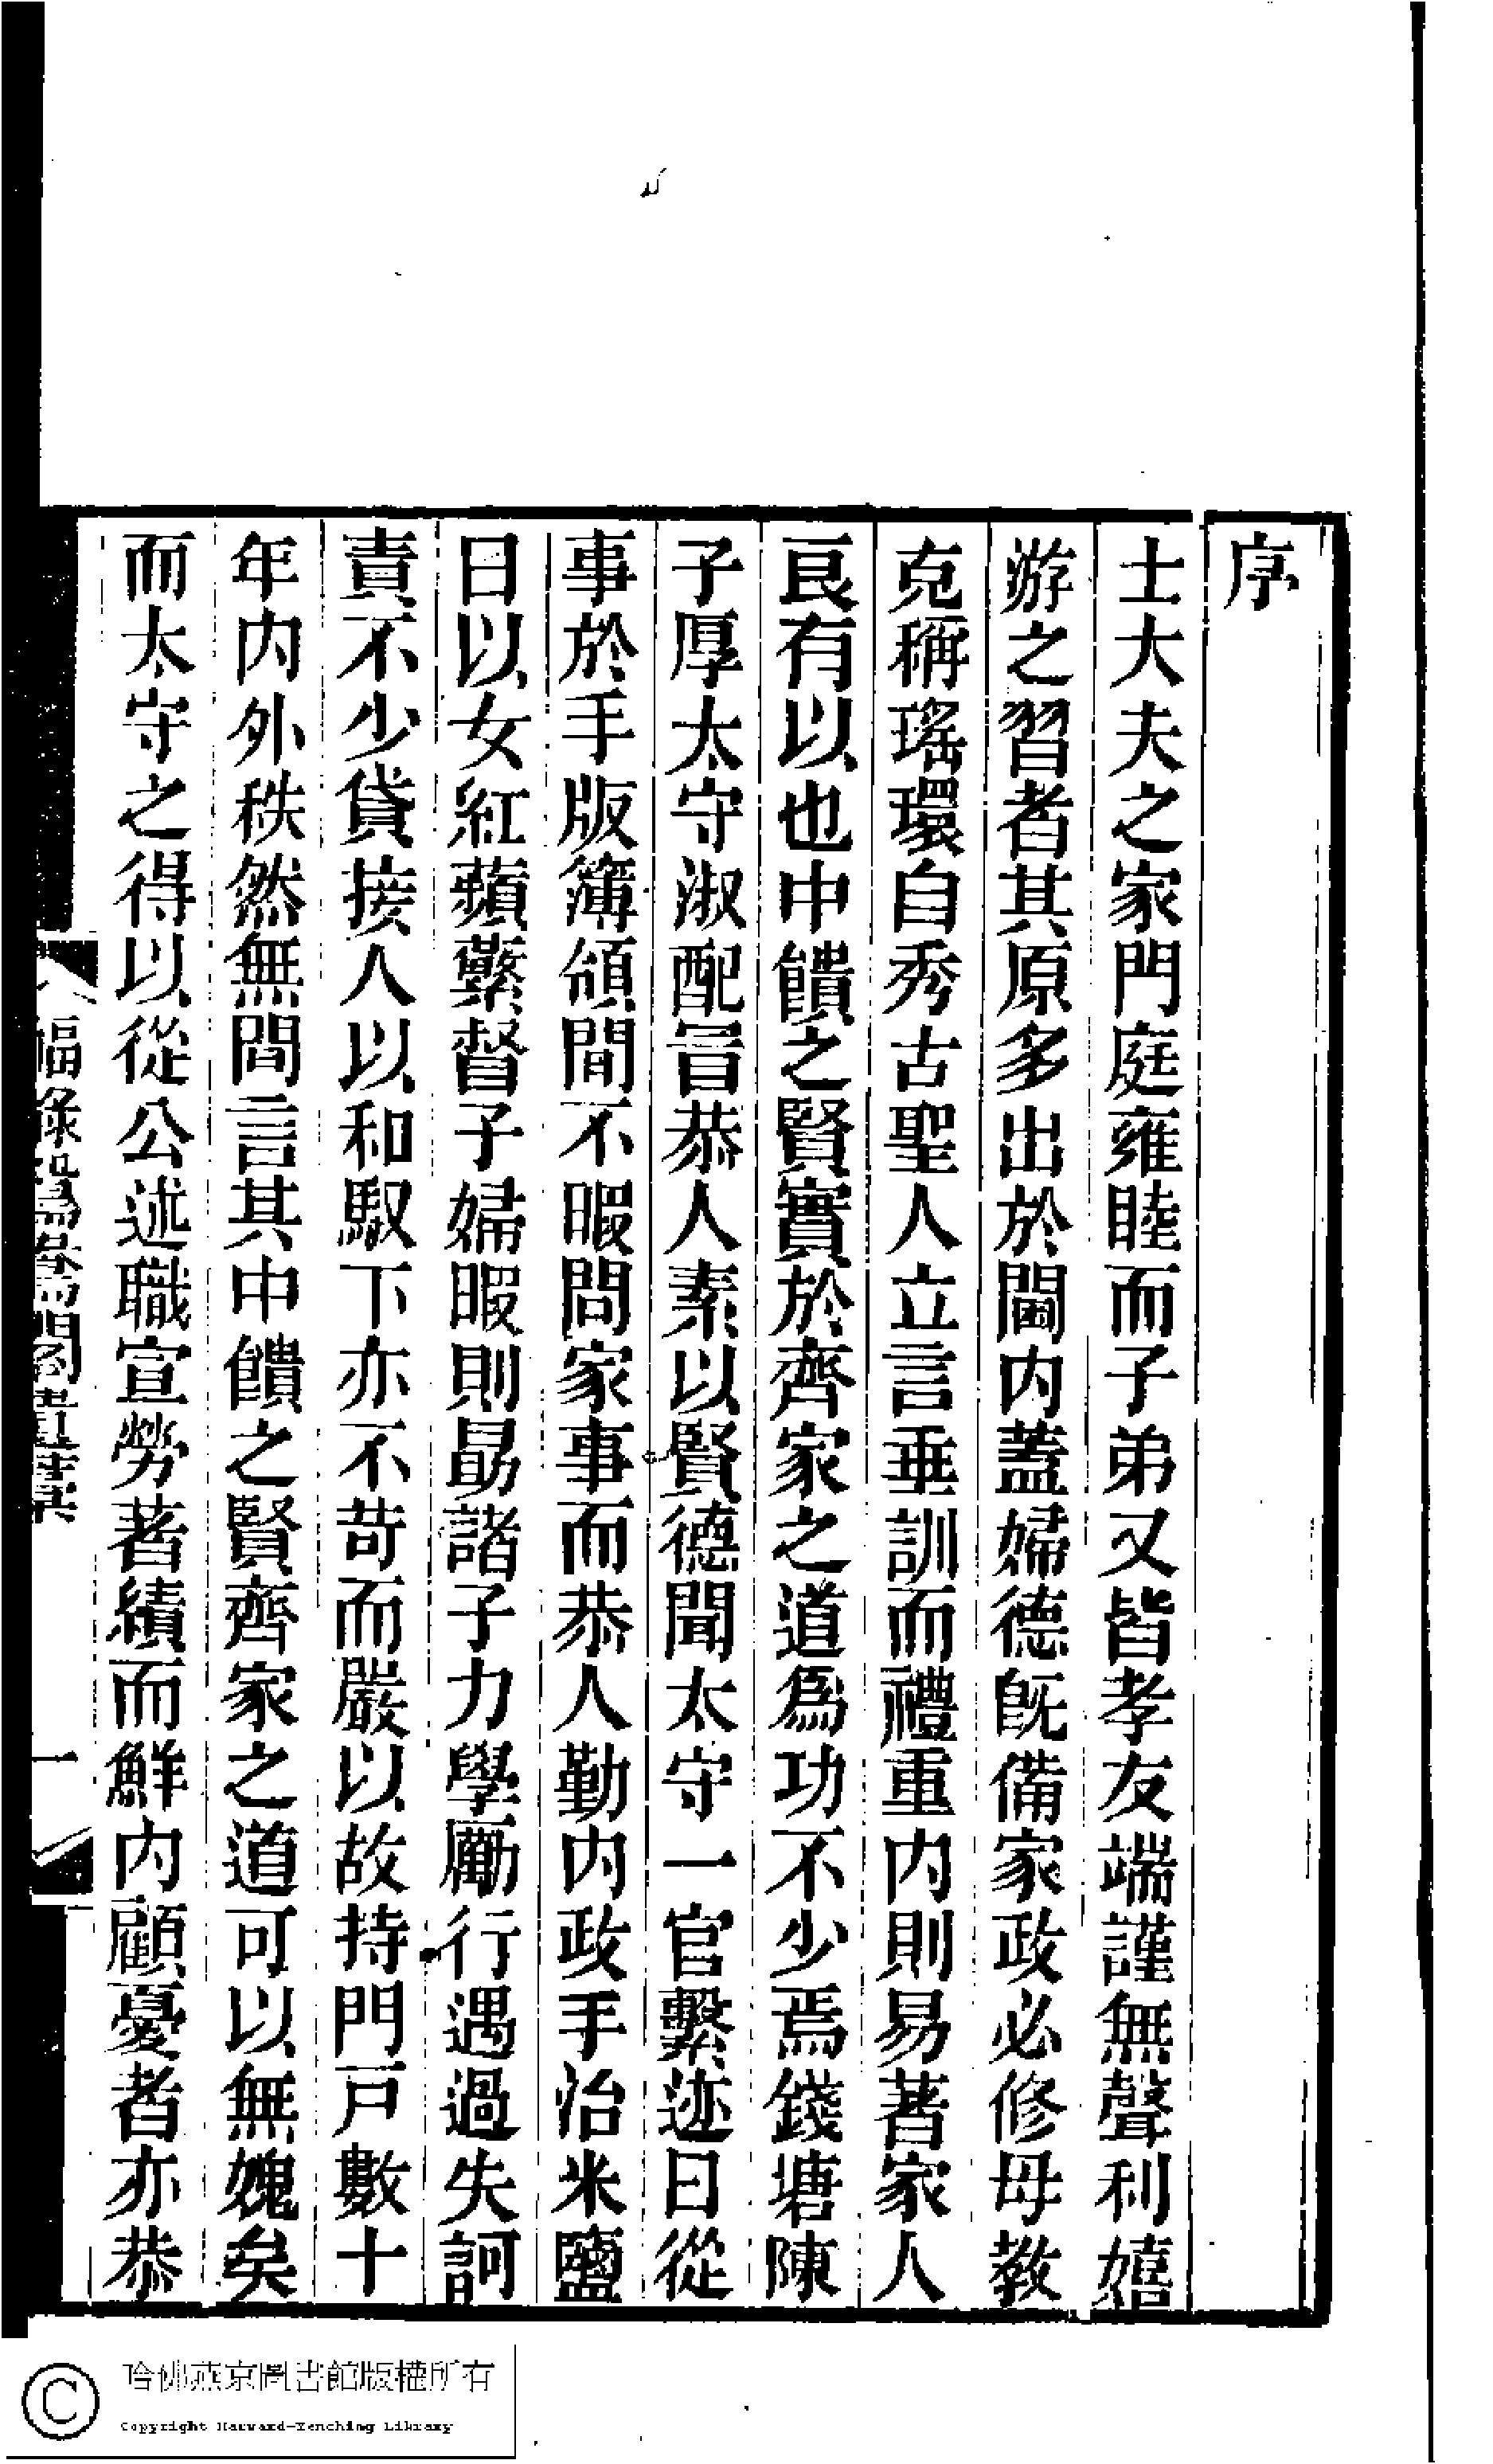 序
士大夫之家門庭雍睦而子弟又皆孝友端謹無聲利嬉
游之習者其原多出於閫内蓋婦德旣備家政必修母敎
克稱瑤環自秀古聖人立言垂訓而禮重内則易著家人
良有以也中饋之賢實於齊家之道爲功不少焉錢塘陳
子厚太守淑配冒恭人素以賢德聞太守一官繫迹日從
事於手版簿領間不暇問家事而恭人勤内政手治米鹽
日以女紅蘋蘩督子婦暇則勗諸子力學勵行遇過失訶
責不少貸接人以和馭下亦不苛而嚴以故持門戸數十
年内外秩然無間言其中饋之賢齊家之道可以無媿矣
而太守之得以從公述職宣勞著績而鮮内顧憂者亦恭
福祿鴛鴦閣遺稾
一
哈佛燕京圖書館版權所有
Copyright Harvard-Yenching Library